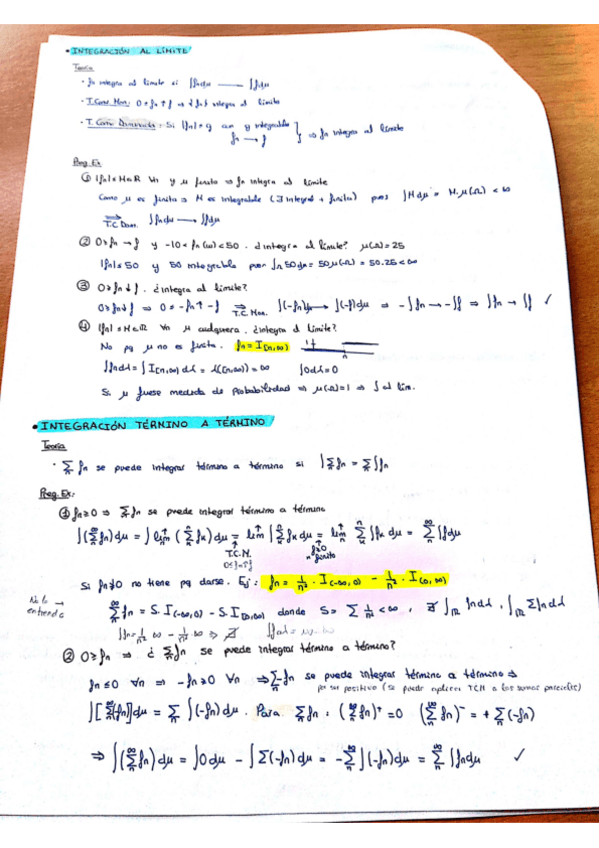 • INTEGRACIÓN AL LÍMITE
Teoría
· fn integra al límite si ∫fndμ ⟶ ∫fdμ
· T. Conv Mon: 0≤fn↑f ⇒ {fn} integra al límite
· T. Conv Dominada: Si |fn|≤g con g integrable } ⇒ fn integra al límite
fn ⟶ f
Preg. Ex
① |fn|≤M∈ℝ ∀n y μ finita ⇒ fn integra al límite
Como μ es finita ⇒ M es integrable (∃ integral + finita) pues ∫Mdμ = M·μ(Ω) < ∞
⇒ T.C. Dom. ∫fndμ ⟶ ∫fdμ
② 0≥fn→f y -10<fn(ω)<50. ¿integra al límite? μ(Ω)=25
|fn|≤50 y 50 integrable pues ∫50dμ = 50μ(Ω) = 50·25<∞
③ 0≥fn↓f. ¿integra al límite?
0≥fn↓f ⇒ 0≤-fn↑-f ⇒ T.C. Mon. ∫(-fn)dμ ⟶ ∫(-f)dμ ⇒ -∫fn → -∫f ⇒ ∫fn → ∫f ✓
④ |fn|≤M∈ℝ ∀n μ cualquiera. ¿integra al límite?
No pq μ no es finita. fn = I[n,∞)
n
∫fndλ = ∫I[n,∞)dλ = λ([n,∞)) = ∞ ∫0dλ=0
Si μ fuese medida de probabilidad ⇒ μ(Ω)=1 ⇒ ∫ al lím.
• INTEGRACIÓN TÉRMINO A TÉRMINO
Teoría
· Σn fn se puede integrar término a término si ∫Σfn = Σ∫fn
Preg. Ex:
① fn≥0 ⇒ Σfn se puede integrar término a término
∫(Σfn)dμ = ∫lim(Σfk)dμ = lim∫Σfkdμ = lim Σ∫fkdμ = Σ∫fdμ
T.C.M. fk≥0
0≤fn↑f n finito
Si fn≱0 no tiene pq darse. Ej: fn = 1/n² · I(-∞,0) - 1/n² · I(0,∞)
No lo → entiendo
Σfn = S·I(-∞,0) - S·I(0,∞) donde S = Σ1/n² < ∞, ∄ ∫ℝ fndλ, ∫ℝ Σfndλ
∫fn = 1/n² ∞ - 1/n² ∞ ⇒ ∄
② 0≥fn ⇒ ¿Σfn se puede integrar término a término?
fn≤0 ∀n ⇒ -fn≥0 ∀n ⇒ Σ-fn se puede integrar término a término ⇒
por ser positivo (se puede aplicar TCM a las sumas parciales)
∫[Σ(-fn)]dμ = Σ∫(-fn)dμ. Para Σfn: (Σfn)⁺=0 (Σfn)⁻ = +Σ(-fn)
⇒ ∫(Σfn)dμ = ∫0dμ - ∫Σ(-fn)dμ = -Σ∫(-fn)dμ = Σ∫fndμ ✓